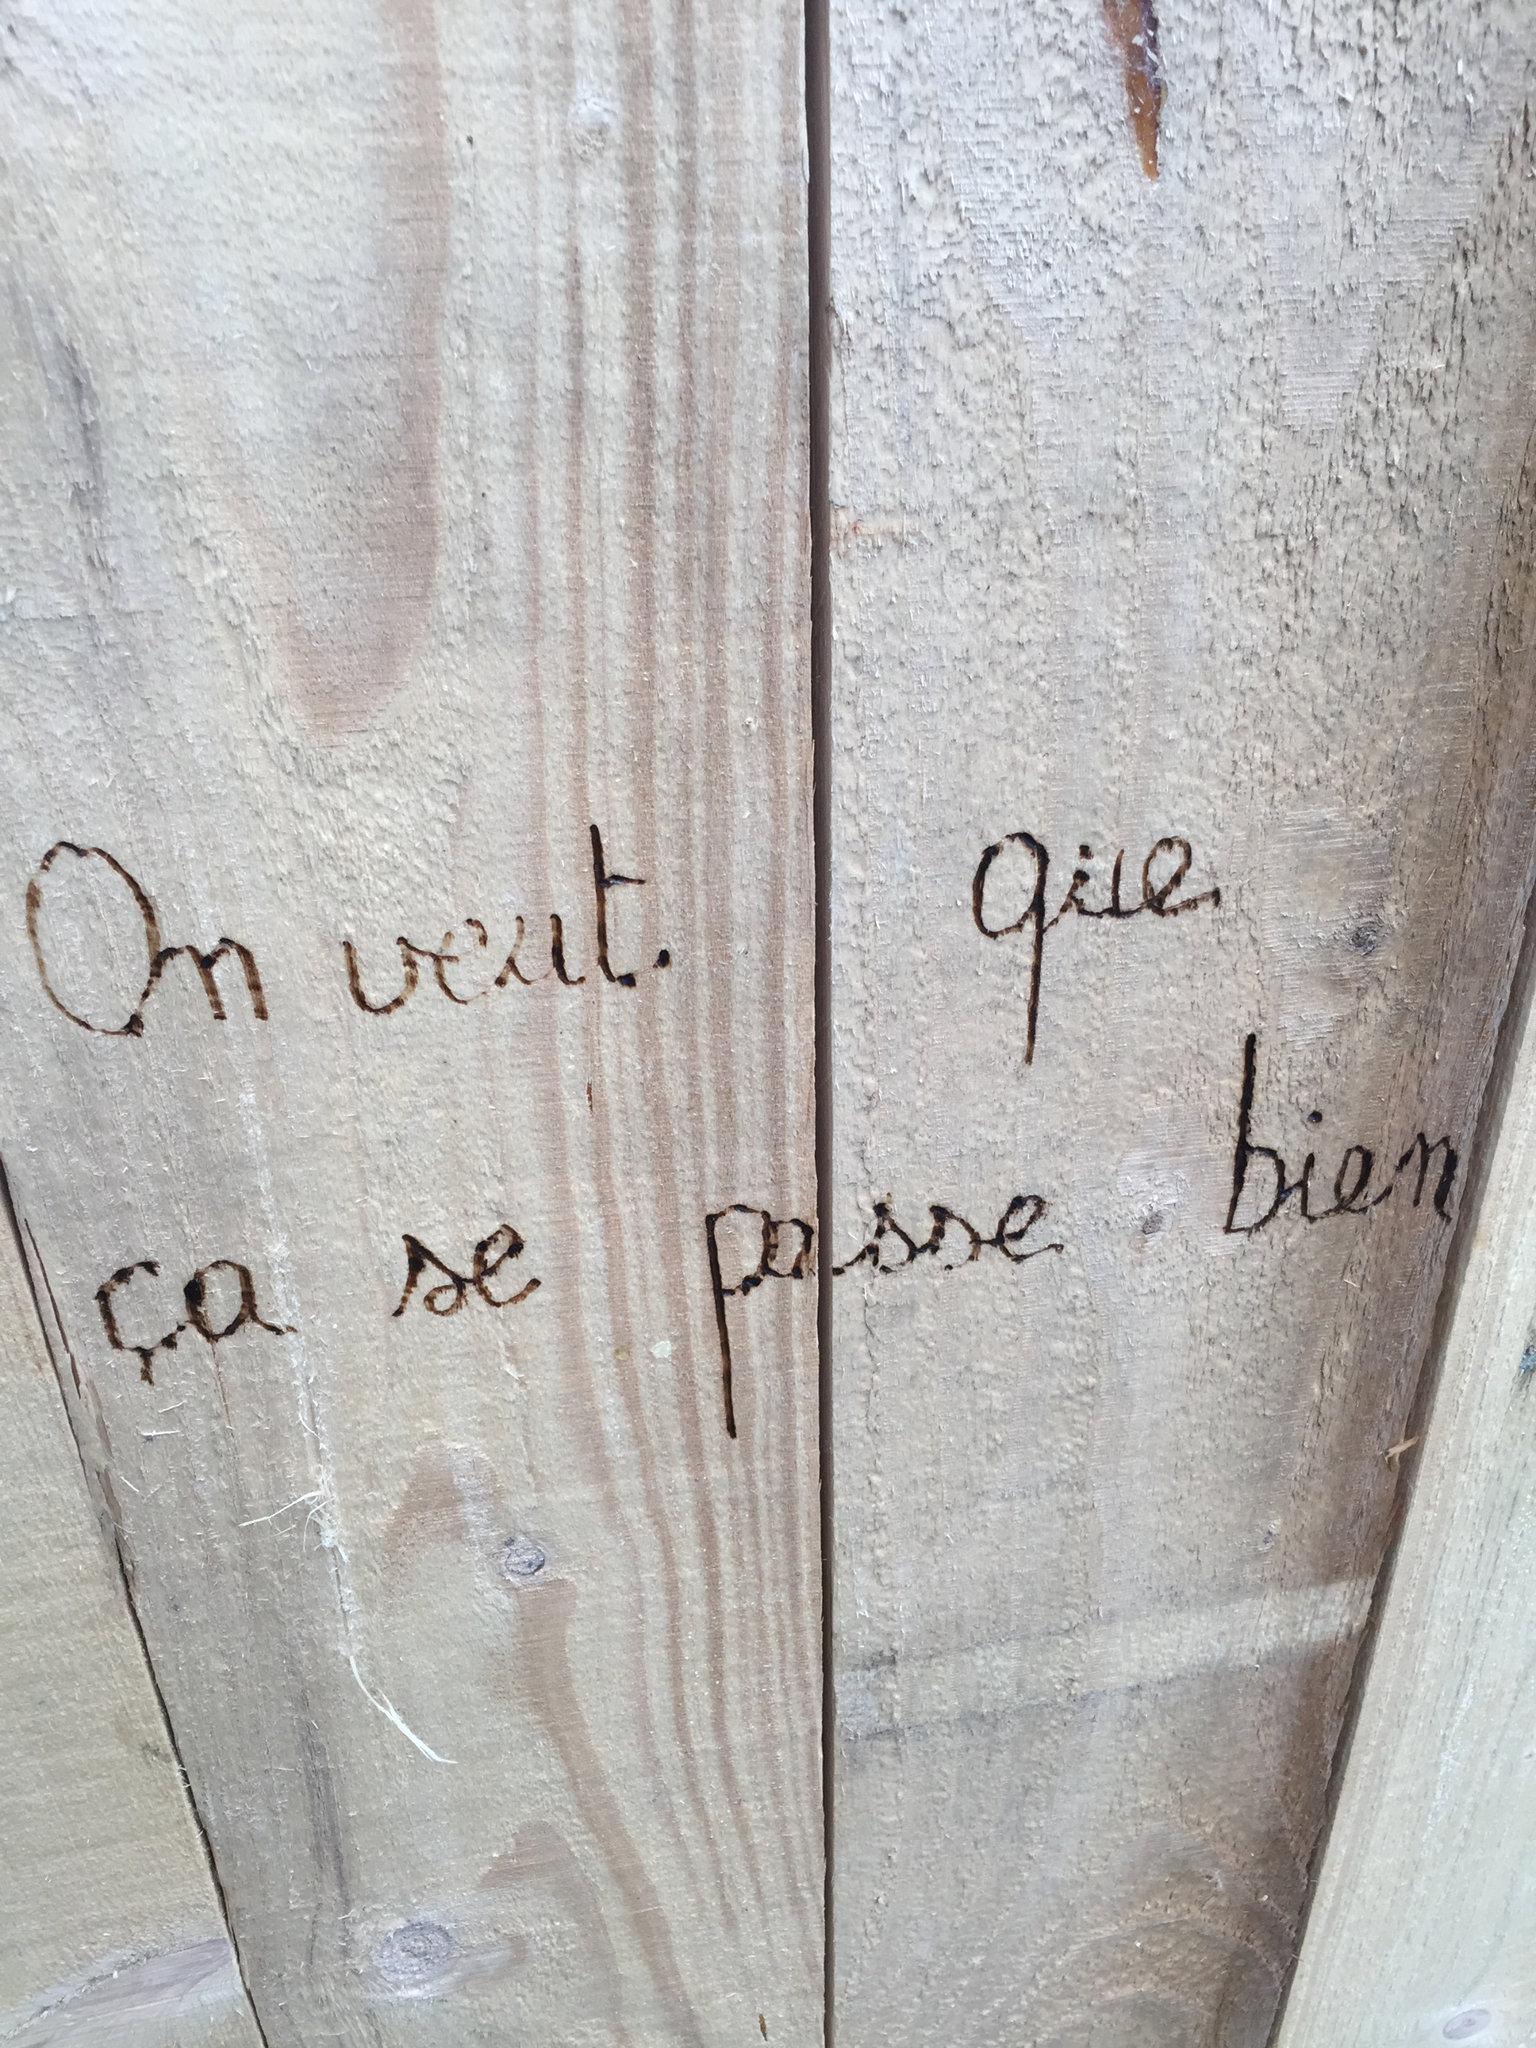 On veut que
ça se passe bien